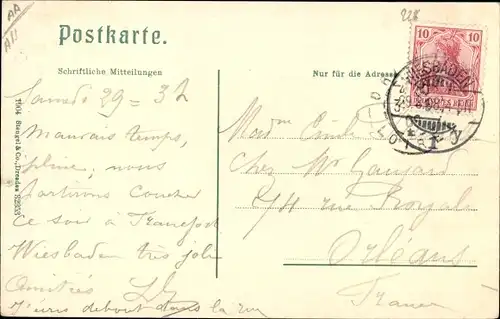 AA
A11
228
Postkarte.
Schriftliche Mitteilungen
Nur für die Adresse
10 10
WIESBADEN
1904 Stengel & Co., Dresden 52933
Samedi 29 = 3h
Mauvais temps,
pluie, nous
partirons coucher
ce soir à Francfort
Wiesbaden très joli
Amitiés
J'écris debout dans la rue
Mme Emile
chez Mr Gansard
54 rue Royale
Orléans
France